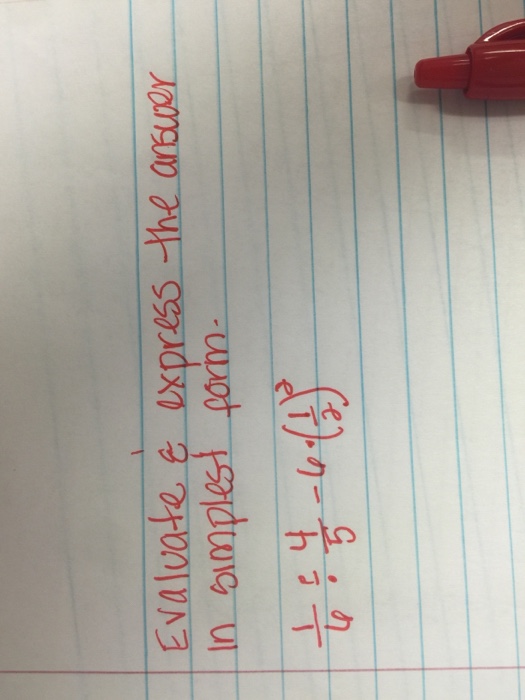 Evaluate & express the answer
in simplest form.
1/6 ÷ 4/5 - 6 · (1/2)²